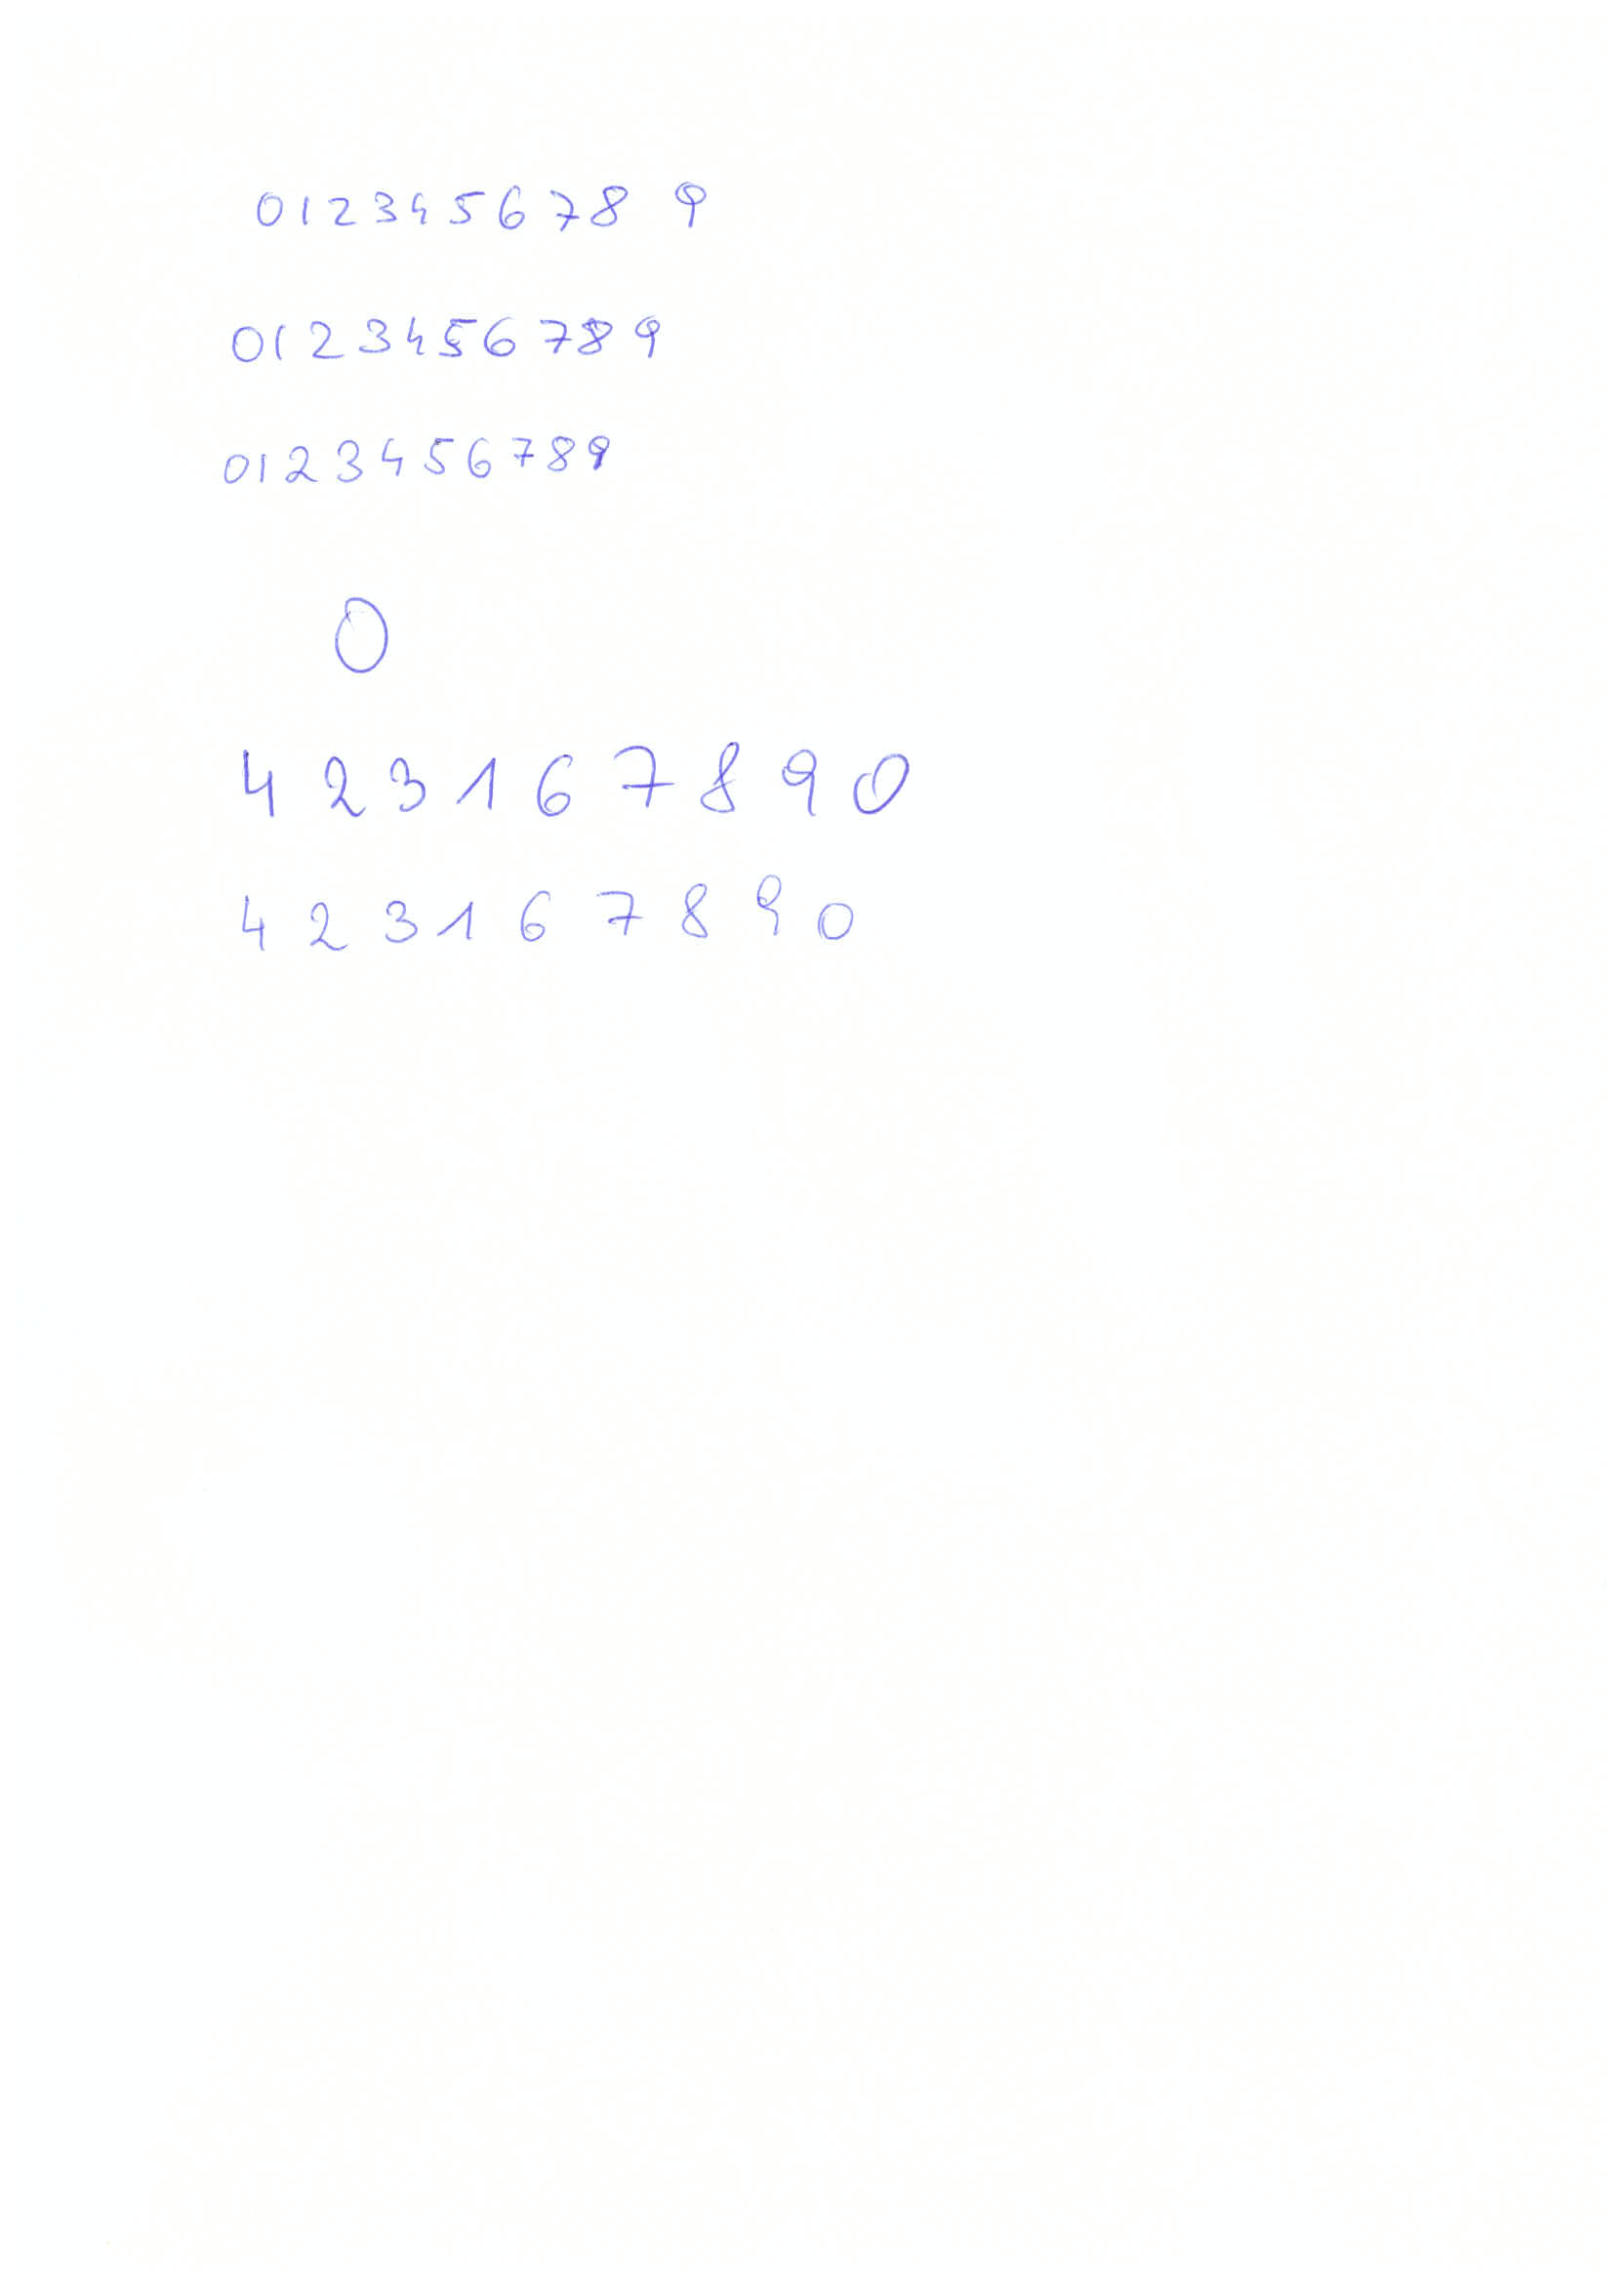 012345678 9
0123456789
0123456789
0
4 2 3 1 6 7 8 9 0
4 2 3 1 6 7 8 9 0